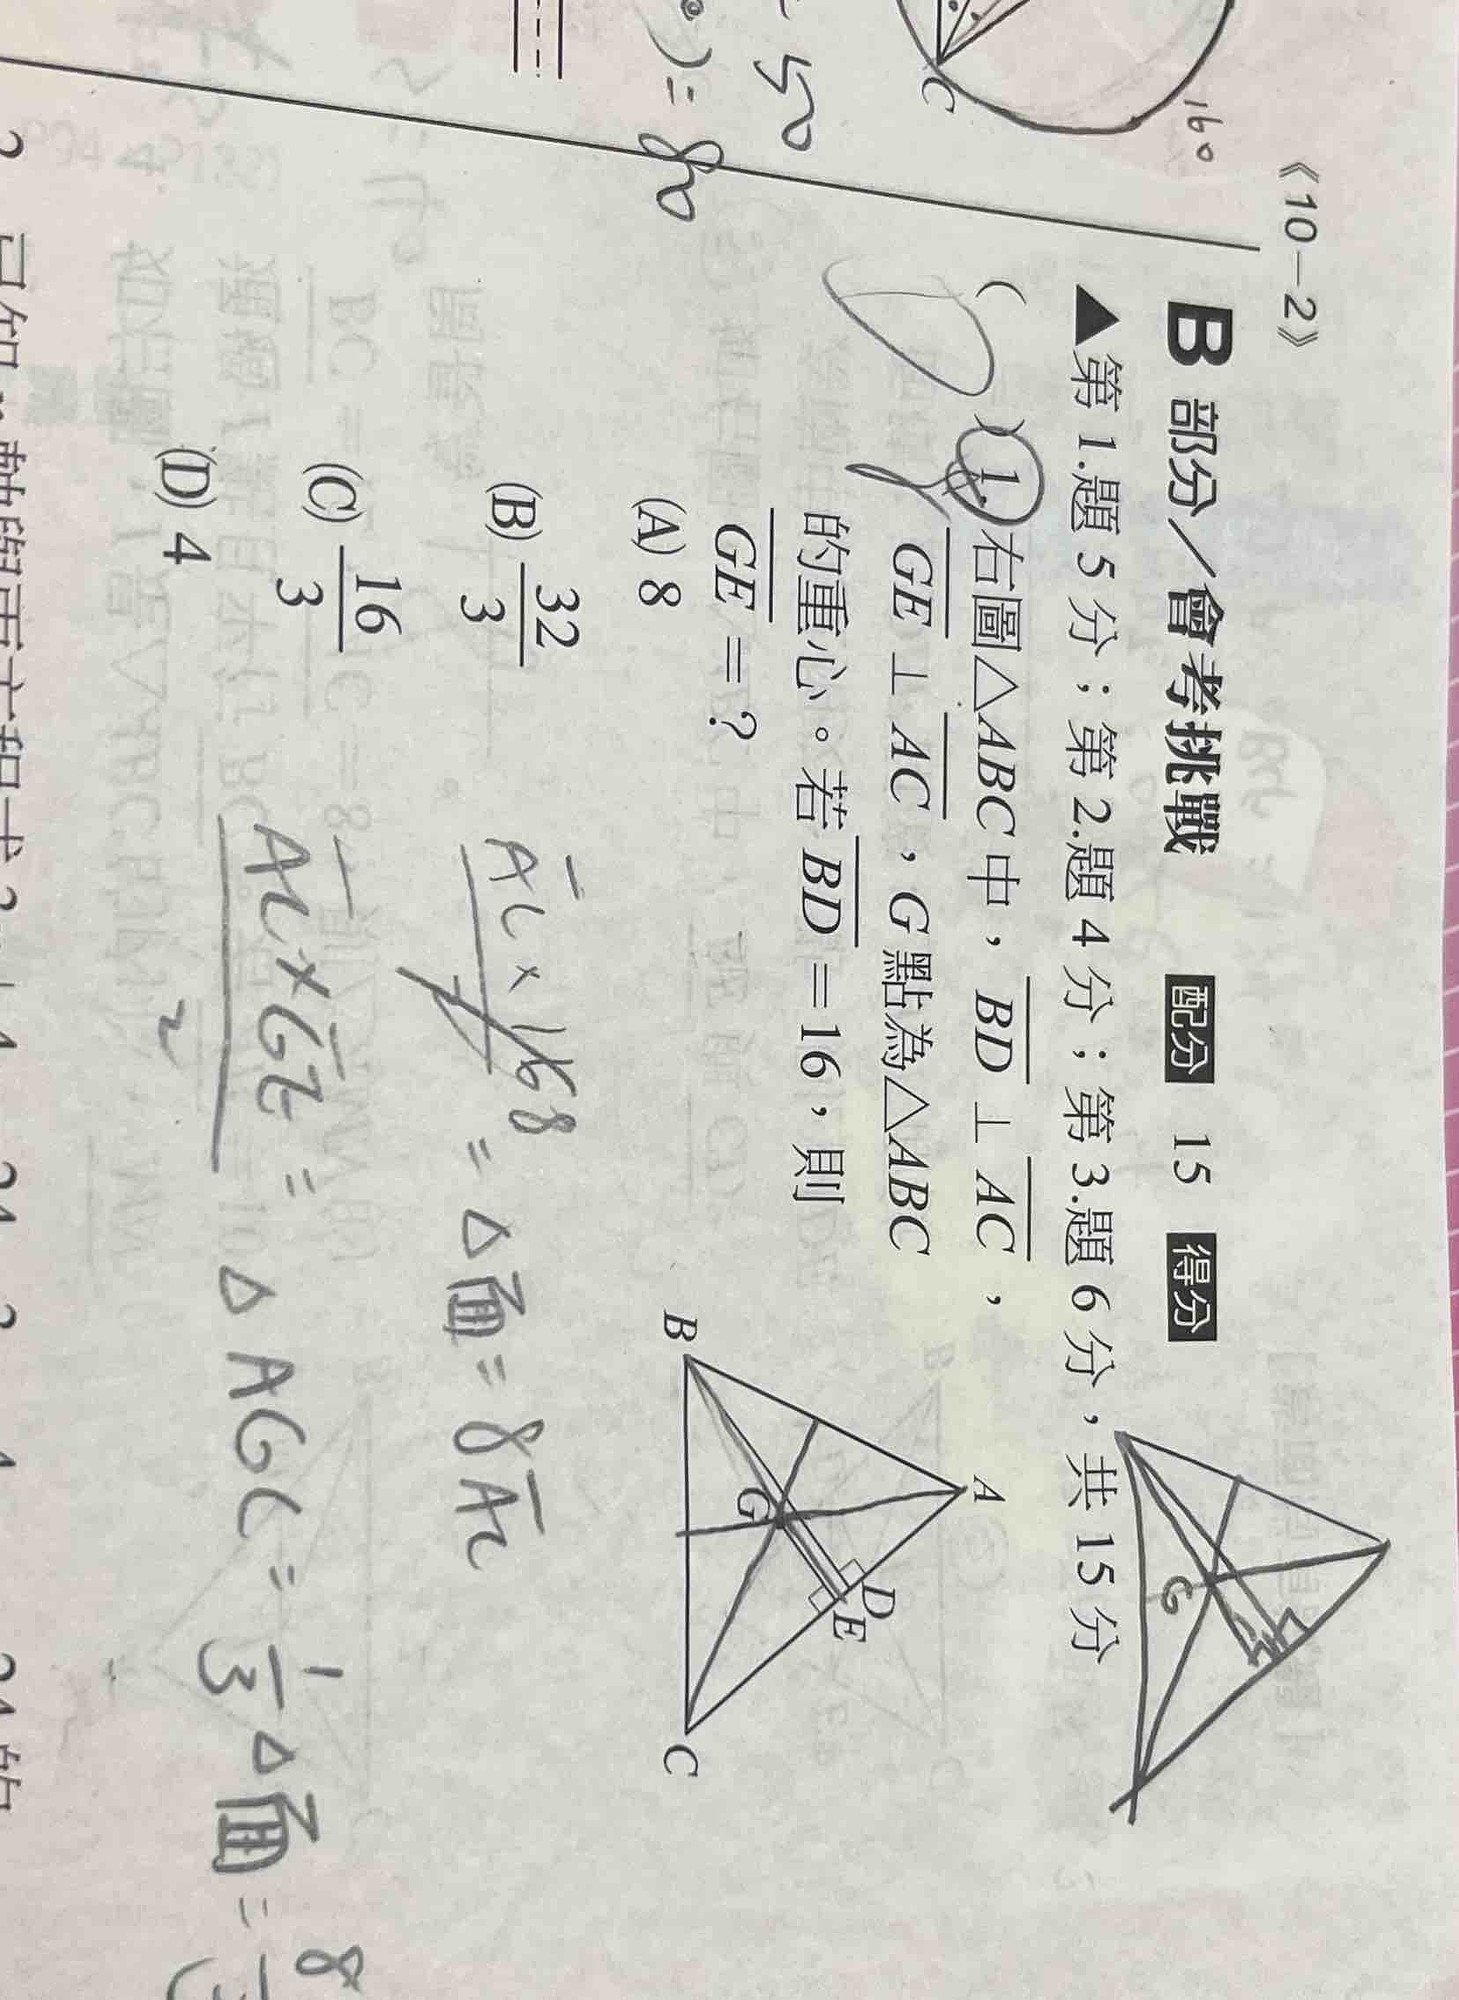 《10－2》
B 部分／會考挑戰 配分 15 得分
▲第1.題5分；第2.題4分；第3.題6分，共15分
( ) 1. 右圖△ABC中，BD⊥AC，
GE⊥AC，G點為△ABC
的重心。若BD＝16，則
GE＝？
(A) 8
(B) 32/3
(C) 16/3
(D) 4
A
B
C
D
E
G
G
C
160
50
)= 80
AC × 16 8 = △面 = 8AC
AC×GE / 2 = △AGC = 1/3 △面 = 8